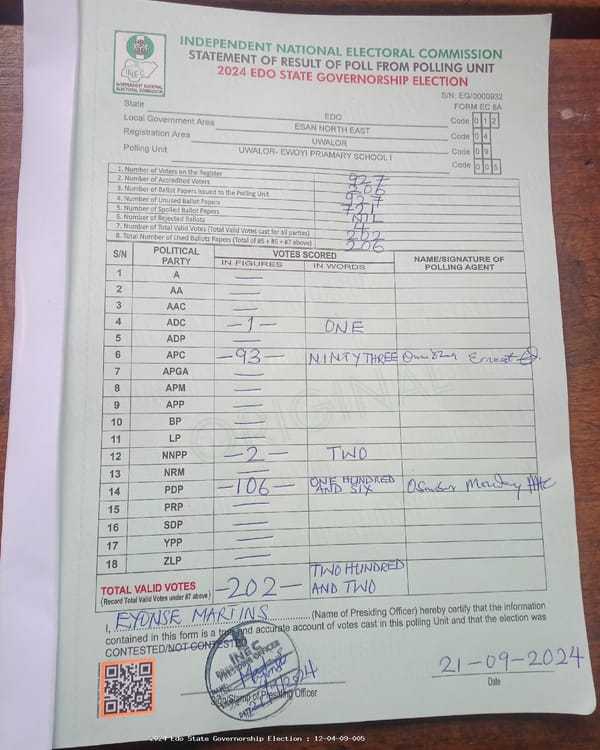 INDEPENDENT NATIONAL ELECTORAL COMMISSION
STATEMENT OF RESULT OF POLL FROM POLLING UNIT
2024 EDO STATE GOVERNORSHIP ELECTION
INEC
INDEPENDENT NATIONAL
ELECTORAL COMMISSION
S/N: EG/0000932
FORM EC 8A
State EDO Code 0 1 2
Local Government Area ESAN NORTH EAST Code 0 4
Registration Area UWALOR Code 0 9
Polling Unit UWALOR- EWOYI PRIAMARY SCHOOL I Code 0 0 5
1. Number of Voters on the Register 927
2. Number of Accredited Voters 206
3. Number of Ballot Papers Issued to the Polling Unit 927
4. Number of Unused Ballot Papers 721
5. Number of Spoiled Ballot Papers NIL
6. Number of Rejected Ballots 4
7. Number of Total Valid Votes (Total Valid Votes cast for all parties) 202
8. Total Number of Used Ballots Papers (Total of #5 + #6 + #7 above) 206
S/N POLITICAL PARTY VOTES SCORED NAME/SIGNATURE OF POLLING AGENT
IN FIGURES IN WORDS
1 A —
2 AA —
3 AAC —
4 ADC -1- ONE
5 ADP —
6 APC -93- NINTYTHREE Ernest
7 APGA —
8 APM —
9 APP —
10 BP —
11 LP —
12 NNPP -2- TWO
13 NRM —
14 PDP -106- ONE HUNDRED AND SIX Monday
15 PRP —
16 SDP —
17 YPP —
18 ZLP —
TOTAL VALID VOTES -202- TWO HUNDRED AND TWO
(Record Total Valid Votes under #7 above)
I, EYONSE MARTINS (Name of Presiding Officer) hereby certify that the information
contained in this form is a true and accurate account of votes cast in this polling Unit and that the election was
CONTESTED/NOT CONTESTED
INEC
PRESIDING OFFICER
21/9/2024
DATE
Sign/Stamp of Presiding Officer
21-09-2024
Date
ORIGINAL
2024 Edo State Governorship Election : 12-04-09-005